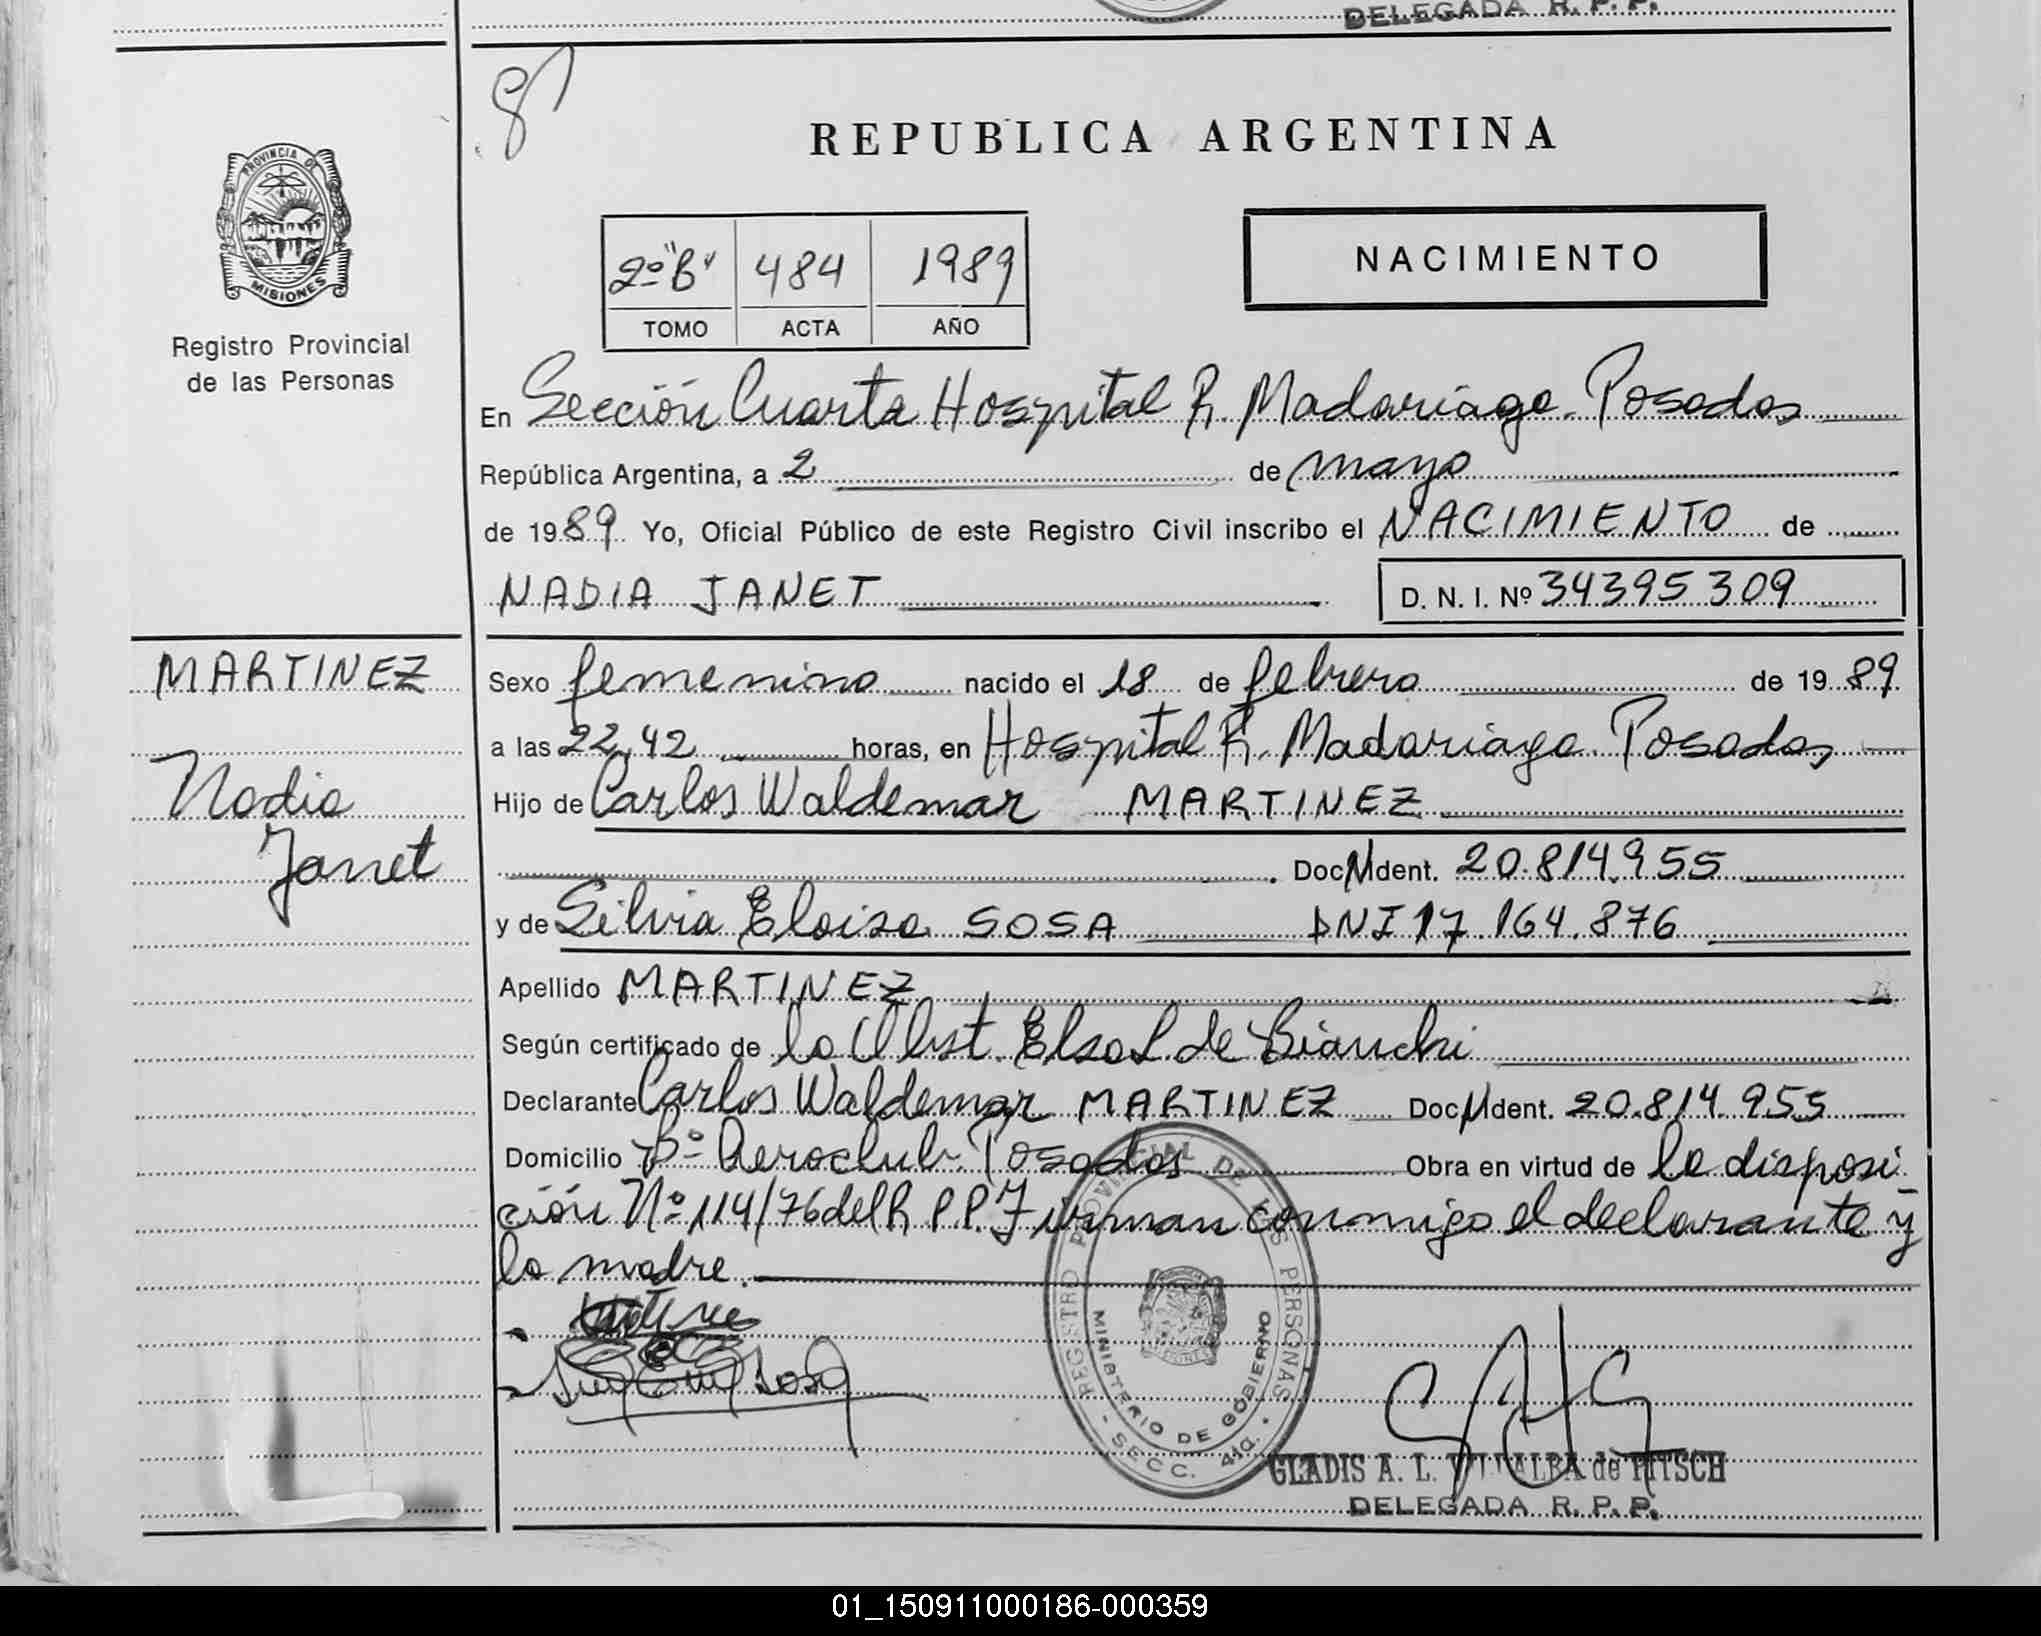 DELEGADA R. P. P.
8
REPUBLICA ARGENTINA
PROVINCIA DE
MISIONES
Registro Provincial
de las Personas
2º "B" 484 1989
TOMO ACTA AÑO
NACIMIENTO
En Sección Cuarta Hospital R. Madariaga - Posadas
República Argentina, a 2 de mayo
de 1989 Yo, Oficial Público de este Registro Civil inscribo el NACIMIENTO de
NADIA JANET D. N. I. Nº 34395309
MARTINEZ
Nadia
Janet
Sexo femenino nacido el 18 de febrero de 1989
a las 22,42 horas, en Hospital R. Madariaga. Posadas
Hijo de Carlos Waldemar MARTINEZ
Doc. Ident. 20.814.955
y de Silvia Eloisa SOSA DNI 17.164.876
Apellido MARTINEZ
Según certificado de la Obst. Elsa L de Bianchi
Declarante Carlos Waldemar MARTINEZ Doc. Ident. 20.814.955
Domicilio Bº Aeroclub. Posadas Obra en virtud de la disposi
ción Nº 114/76 del R.P.P. Firman conmigo el declarante y
la madre.
Sosa
REGISTRO PROVINCIAL DE LAS PERSONAS
MINISTERIO DE GOBIERNO
- SECC. 4ta. -
GLADIS A. L. VILLALBA de PITSCH
DELEGADA R. P. P.
01_150911000186-000359